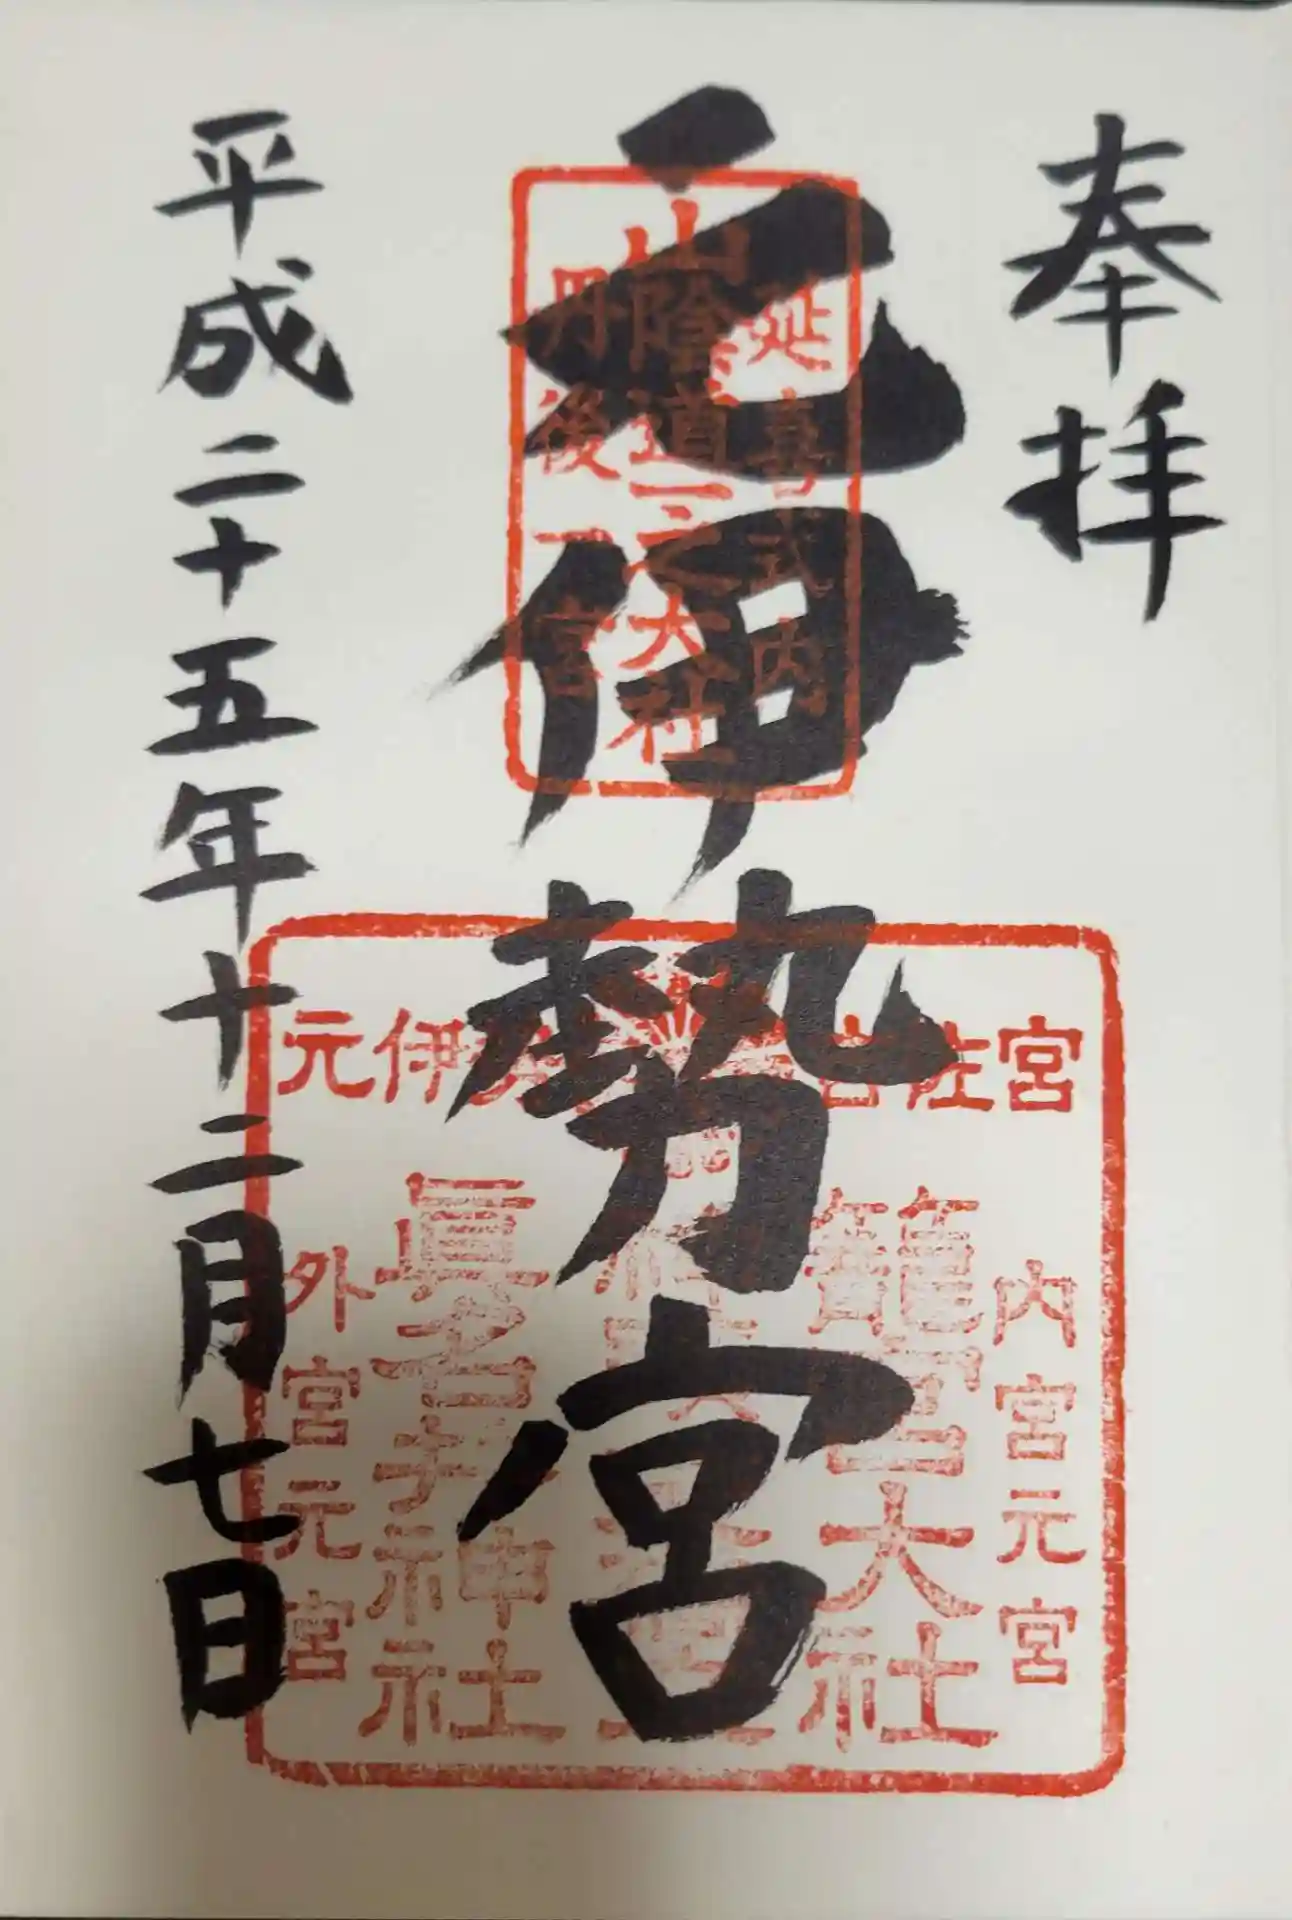 奉拝
元伊勢宮
平成二十五年十二月七日
延喜式内
山陰道一之大社
丹後一宮
元伊
吉佐宮
内宮元宮
籠宮大社
眞名井神社
外宮元宮